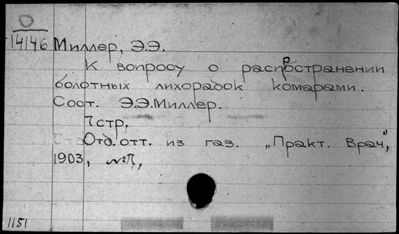 О
14146 Миллер, Э.Э.
К вопросу о распространении
болотных лихорадок комарами.
Сост. Э.Э.Миллер.
7стр.
Отд. отт. из газ. „Практ. Врач",
1903, №7,
1151